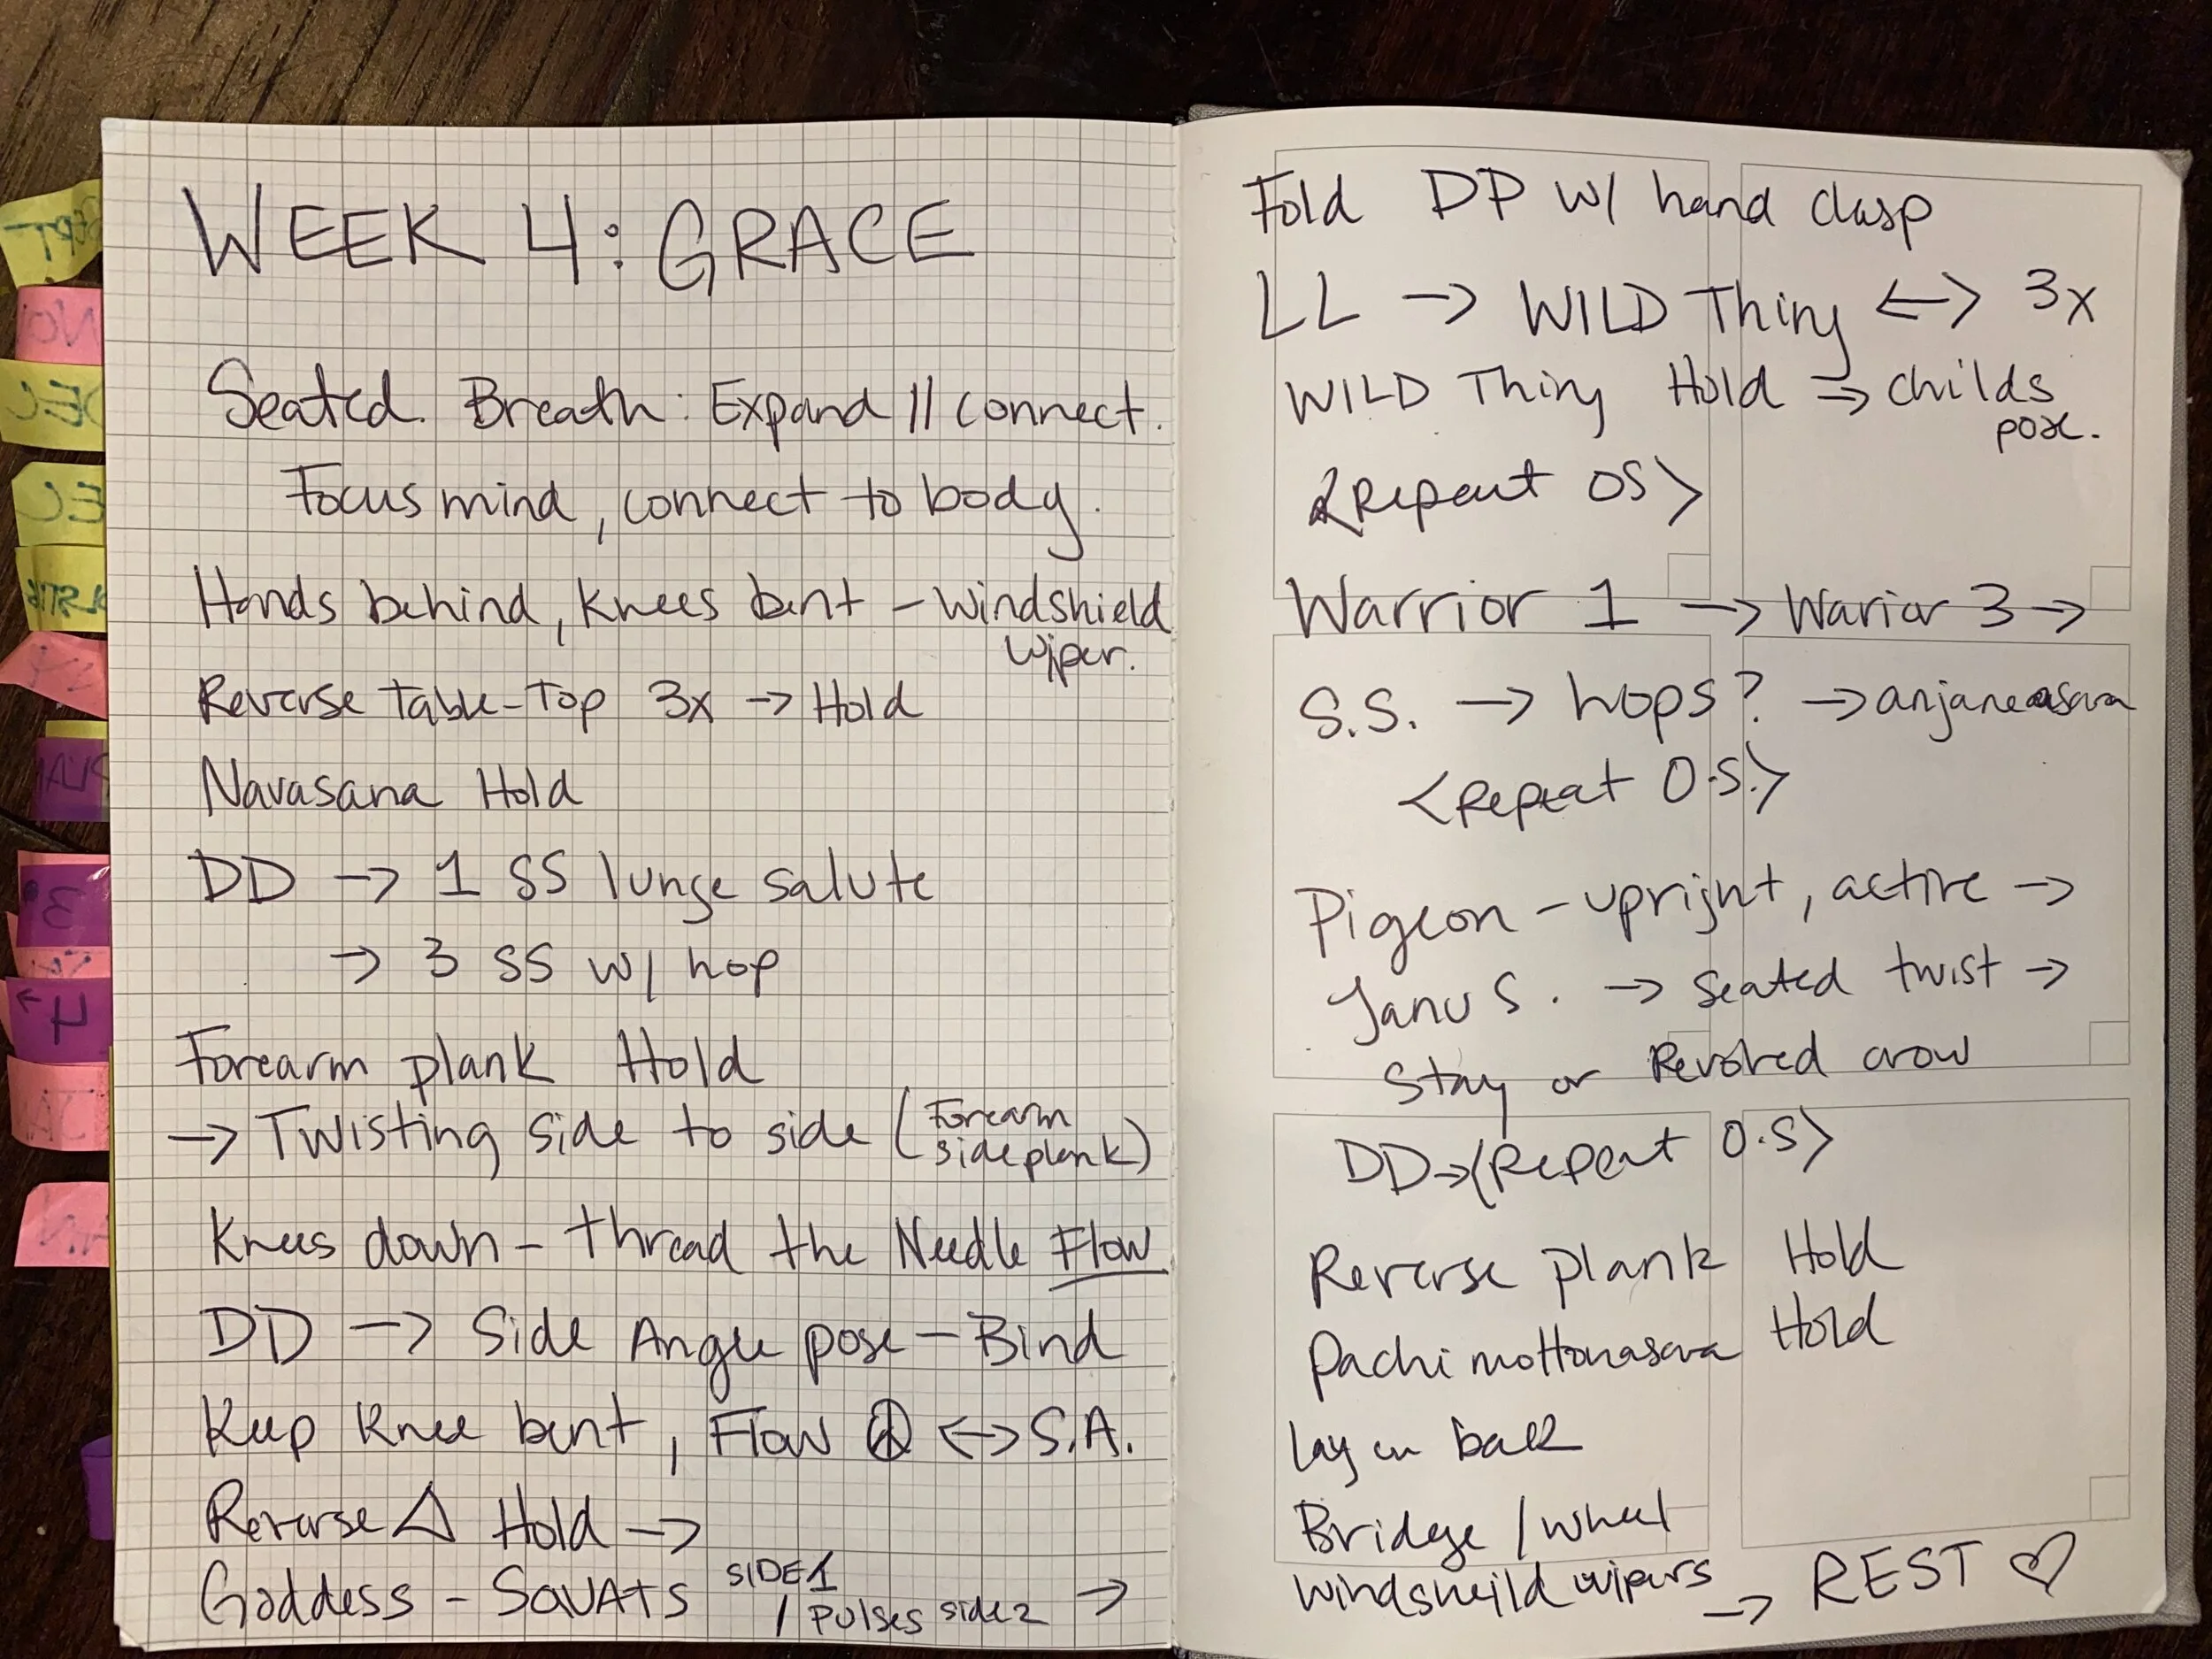 WEEK 4: GRACE
Seated. Breath: Expand // connect.
Focus mind, connect to body.
Hands behind, Knees bent - Windshield
wiper.
Reverse table-Top 3x → Hold
Navasana Hold
DD → 1 SS lunge salute
→ 3 SS w/ hop
Forearm plank Hold
→ Twisting side to side (Forearm
sideplank)
Knees down - thread the Needle Flow
DD → Side Angle pose - Bind
Keep Knee bent, Flow ↔ S.A.
Reverse △ Hold →
Goddess - SQUATS SIDE 1
/ PULSES side 2 →
Fold DP w/ hand clasp
LL → WILD Thing ↔ 3x
WILD Thing Hold → childs
pose.
<Repeat OS>
Warrior 1 → Warior 3 →
S.S. → hops? → anjaneasana
<Repeat O.S.>
Pigeon - upright, active →
Janu S. → Seated twist →
Stay or Revolved crow
DD → <Repeat O.S>
Reverse plank Hold
Pachimottonasana Hold
Lay on back
Bridge / wheel
windsheild wipers
→ REST ♡
SEPT
NO
DEC
EC
3
4
JA